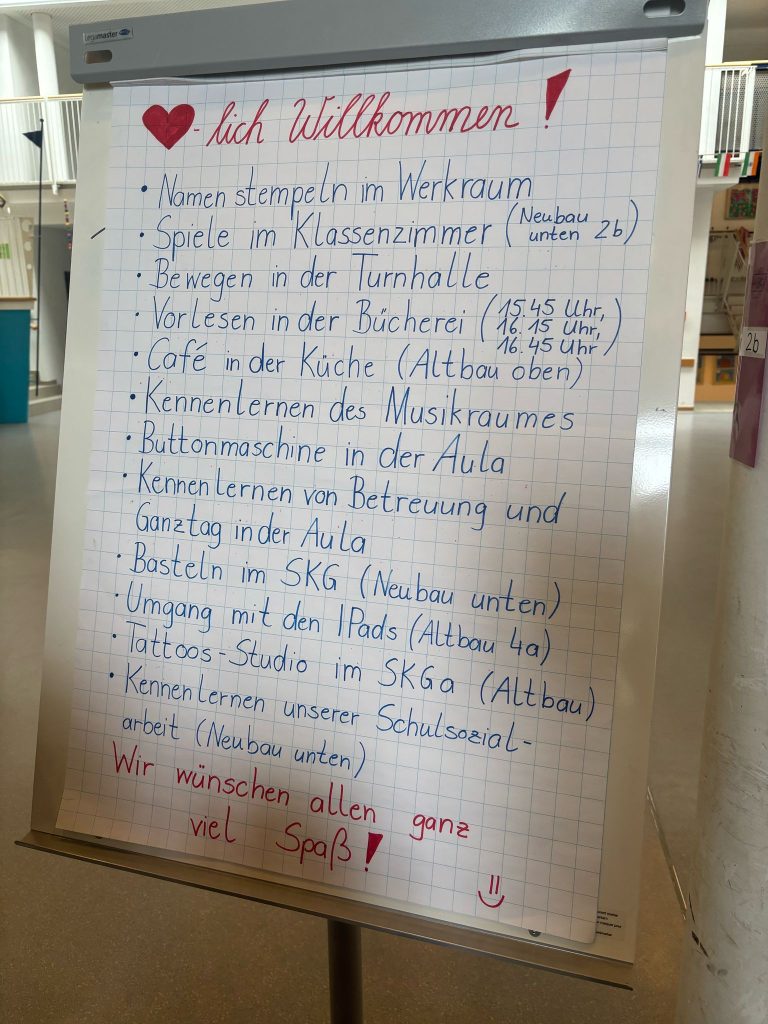 Legamaster
❤-lich Willkommen!
• Namen stempeln im Werkraum
• Spiele im Klassenzimmer (Neubau
unten 2b)
• Bewegen in der Turnhalle
• Vorlesen in der Bücherei (15.45 Uhr,
16.15 Uhr,
16.45 Uhr)
• Café in der Küche (Altbau oben)
• Kennenlernen des Musikraumes
• Buttonmaschine in der Aula
• Kennenlernen von Betreuung und
Ganztag in der Aula
• Basteln im SKG (Neubau unten)
• Umgang mit den IPads (Altbau 4a)
• Tattoos-Studio im SKGa (Altbau)
• Kennenlernen unserer Schulsozial-
arbeit (Neubau unten)
Wir wünschen allen ganz
viel Spaß!
2b